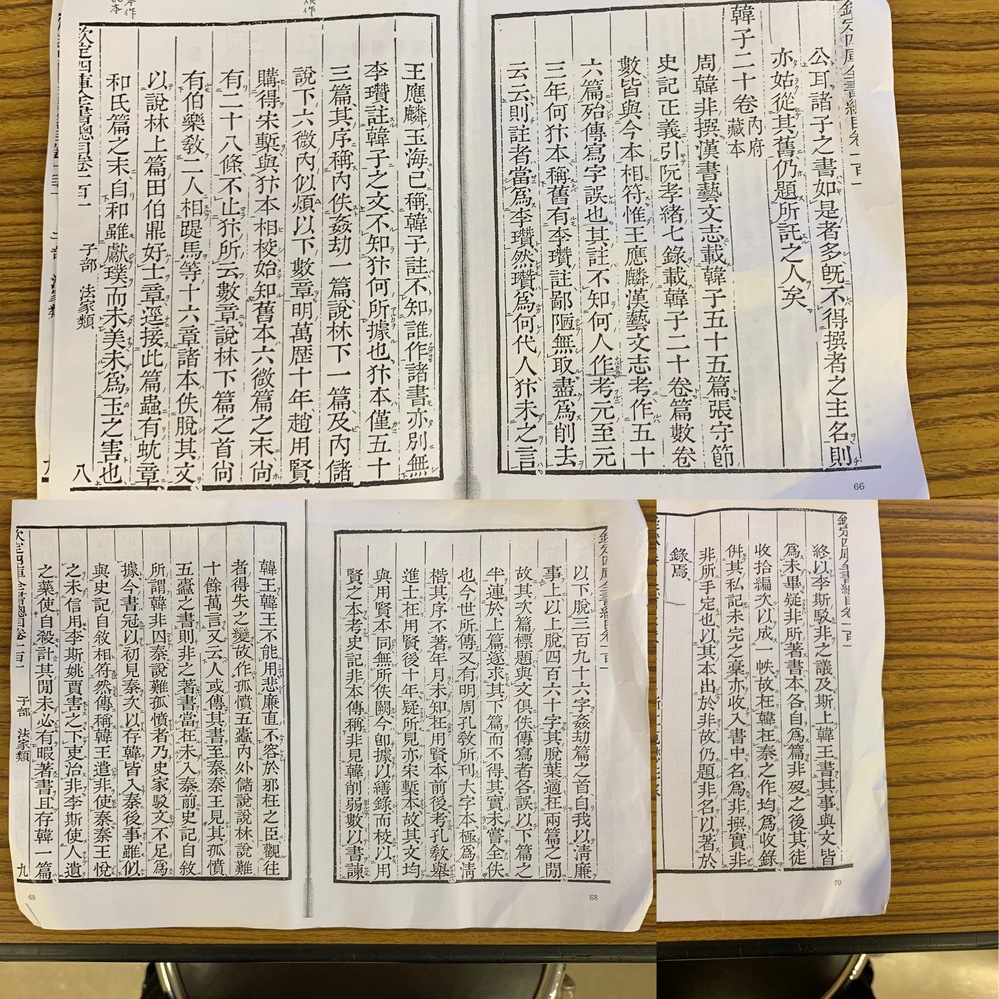 欽定四庫全書總目卷一百一
公耳諸子之書如是者多旣不得撰者之主名則
亦姑從其舊仍題所託之人矣
韓子二十卷內府藏本
周韓非撰漢書藝文志載韓子五十五篇張守節
史記正義引阮孝緒七錄載韓子二十卷篇數卷
數皆與今本相符惟王應麟漢藝文志考作五十
六篇殆傳寫字誤也其註不知何人作考元至元
三年何犿本稱舊有李瓚註鄙陋無取盡爲削去
云云則註者當爲李瓚然瓚爲何代人犿未之言
66
王應麟玉海已稱韓子註不知誰作諸書亦別無
李瓚註韓子之文不知犿何所據也犿本僅五十
三篇其序稱內佚姦劫一篇說林下一篇及內儲
說下六微內似煩以下數章明萬歷十年趙用賢
購得宋槧與犿本相校始知舊本六微篇之末尙
有二十八條不止犿所云數章說林下篇之首尙
有伯樂敎二人相踶馬等十六章諸本佚脫其文
以說林上篇田伯鼎好士章逕接此篇蟲有蚘章
和氏篇之末自和雖獻璞而未美未爲玉之害也
欽定四庫全書總目卷一百一
子部 法家類
八
欽定四庫全書總目卷一百一
以下脫三百九十六字姦劫篇之首自我以淸廉
事上以上脫四百六十字其脫葉適在兩篇之閒
故其次篇標題與文俱佚傳寫者各誤以下篇之
半連於上篇遂求其下篇而不得其實未嘗全佚
也今世所傳又有明周孔敎所刊大字本極爲淸
楷其序不著年月未知在用賢本前後考孔敎舉
進士在用賢後十年疑所見亦宋槧本故其文均
與用賢本同無所佚闕今卽據以繕錄而校以用
賢之本考史記非本傳稱非見韓削弱數以書諫
68
韓王韓王不能用悲廉直不容於邪枉之臣觀往
者得失之變故作孤憤五蠹內外儲說說林說難
十餘萬言又云人或傳其書至秦秦王見其孤憤
五蠹之書則非之著書當在未入秦前史記自敘
所謂韓非囚秦說難孤憤者乃史家駁文不足爲
據今書冠以初見秦次以存韓皆入秦後事雖似
與史記自敘相符然傳稱韓王遣非使秦秦王悅
之未信用李斯姚賈害之下吏治非李斯使人遺
之藥使自殺計其閒未必有暇著書且存韓一篇
欽定四庫全書總目卷一百一
子部 法家類
九
69
欽定四庫全書總目卷一百一
終以李斯駁非之議及斯上韓王書其事與文皆
爲未畢疑非所著書本各自爲篇非歿之後其徒
收拾編次以成一帙故在韓在秦之作均爲收錄
倂其私記未完之稾亦收入書中名爲非撰實非
非所手定也以其本出於非故仍題非名以著於
錄焉
70